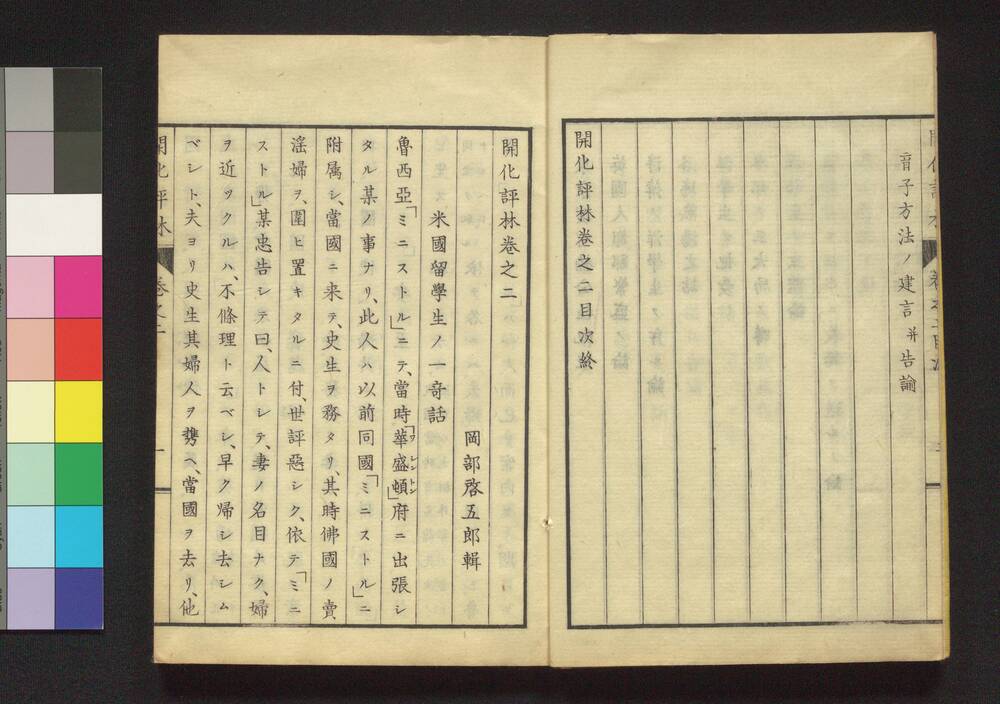 音子方法ノ建言並告諭
開化評林卷之二目次終
開化評林卷之二
岡部啓五郎輯
米國留學生ノ一奇話
魯西亞「ミニストル」ニテ、當時「華盛頓」府ニ出張シ
ワシントン
タル某ノ事ナリ、此人ハ以前同國「ミニストル」ニ
附属シ、當國ニ来テ、史生ヲ務タリ、其時佛國ノ賣
淫婦ヲ、圍ヒ置キタルニ付、世評惡シク、依テ「ミニ
ストル」某忠告シテ曰、人トシテ、妻ノ名目ナク、婦
ヲ近ツクルハ、不條理ト云ベシ、早ク帰シ去シム
ベシト、夫ヨリ史生其婦人ヲ携ヘ、當國ヲ去リ、他
開化評林
卷之二
一